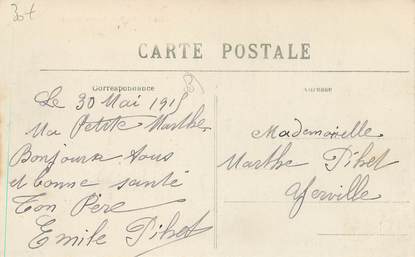 CARTE POSTALE
Correspondance
Le 30 Mai 191
Ma Petite Marthe
Bonjours tous
et bonne santé
Ton Père
Emile Pihet
Adresse
Mademoiselle
Marthe Pihet
Yerville